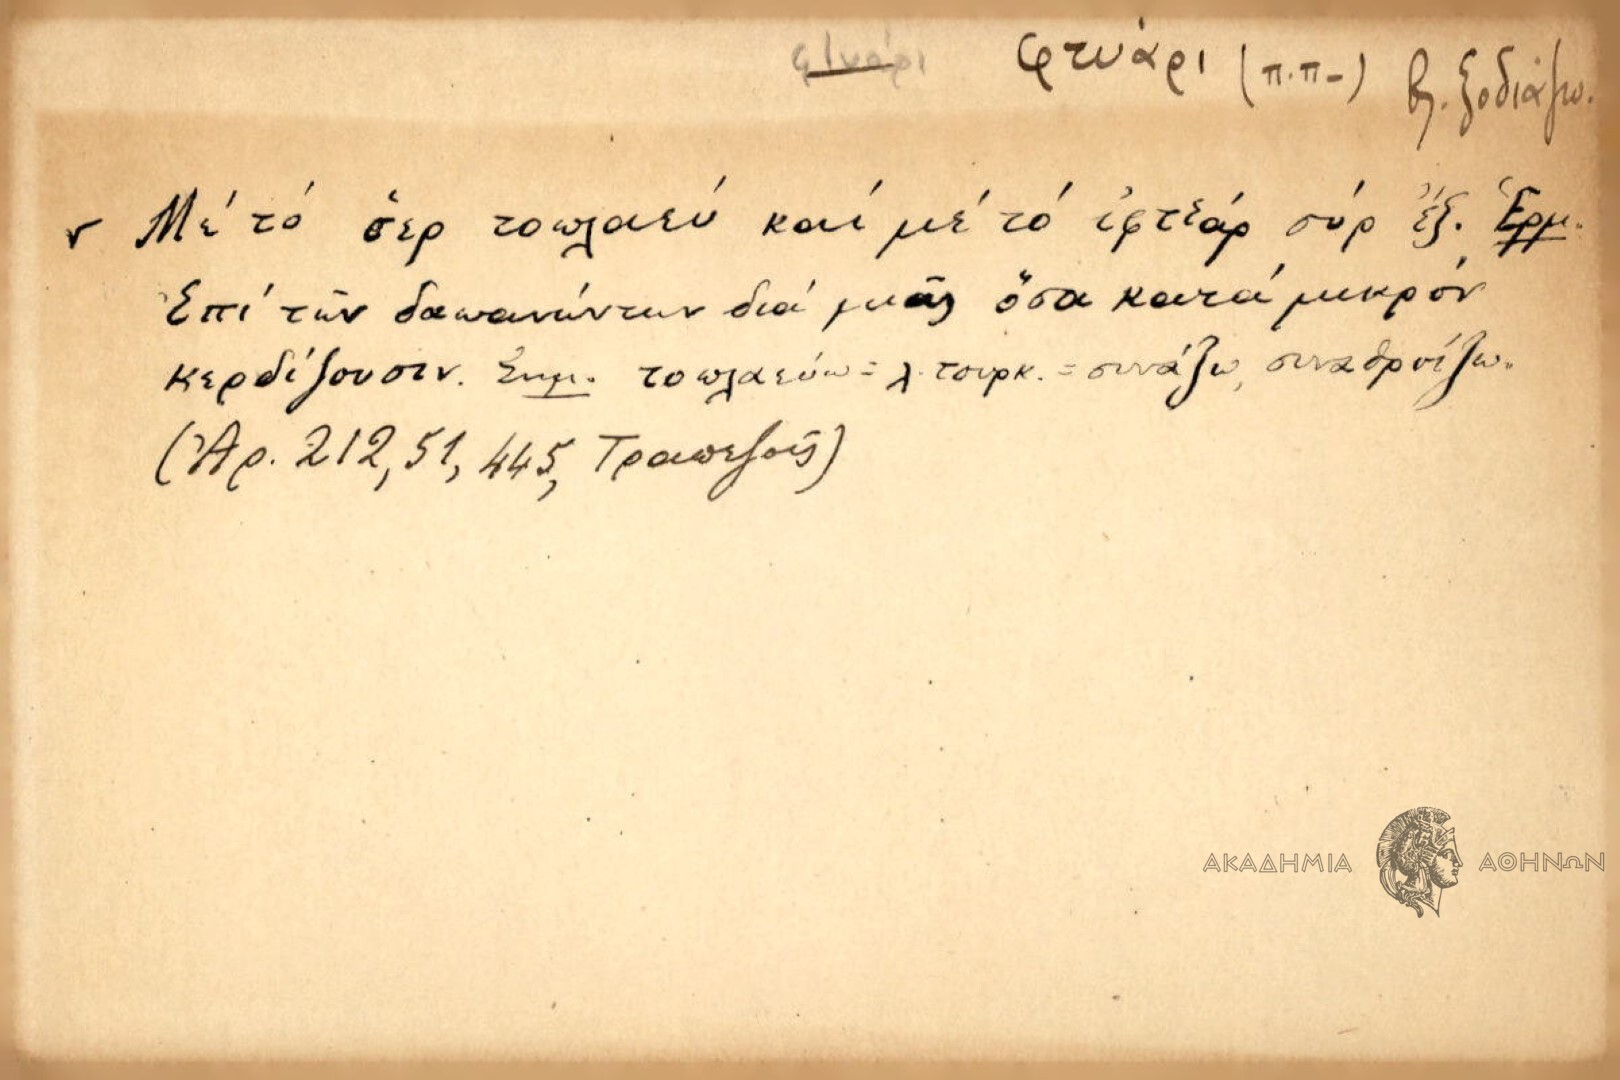 φτυάρι φτυάρι (π.π-) βλ. ξοδιάζω.
Μέ τό σ̌ερ τοπλαεύ καί μέ τό ἰφτιάρ σύρ ἔξ. Ἑρμ.
Ἐπί τῶν δαπανώντων διά μιᾶς ὅσα κατά μικρόν
κερδίζουσιν. Σημ. τοπλαεύω = λ. τουρκ. = συνάζω, συναθροίζω.
(Ἀρ. 212, 51, 445, Τραπεζοῦς)
ΑΚΑΔΗΜΙΑ ΑΘΗΝΩΝ